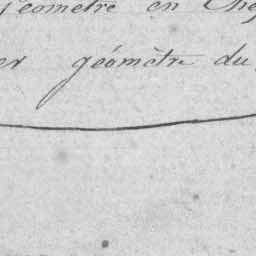 géomètre en Chef
er géomètre du